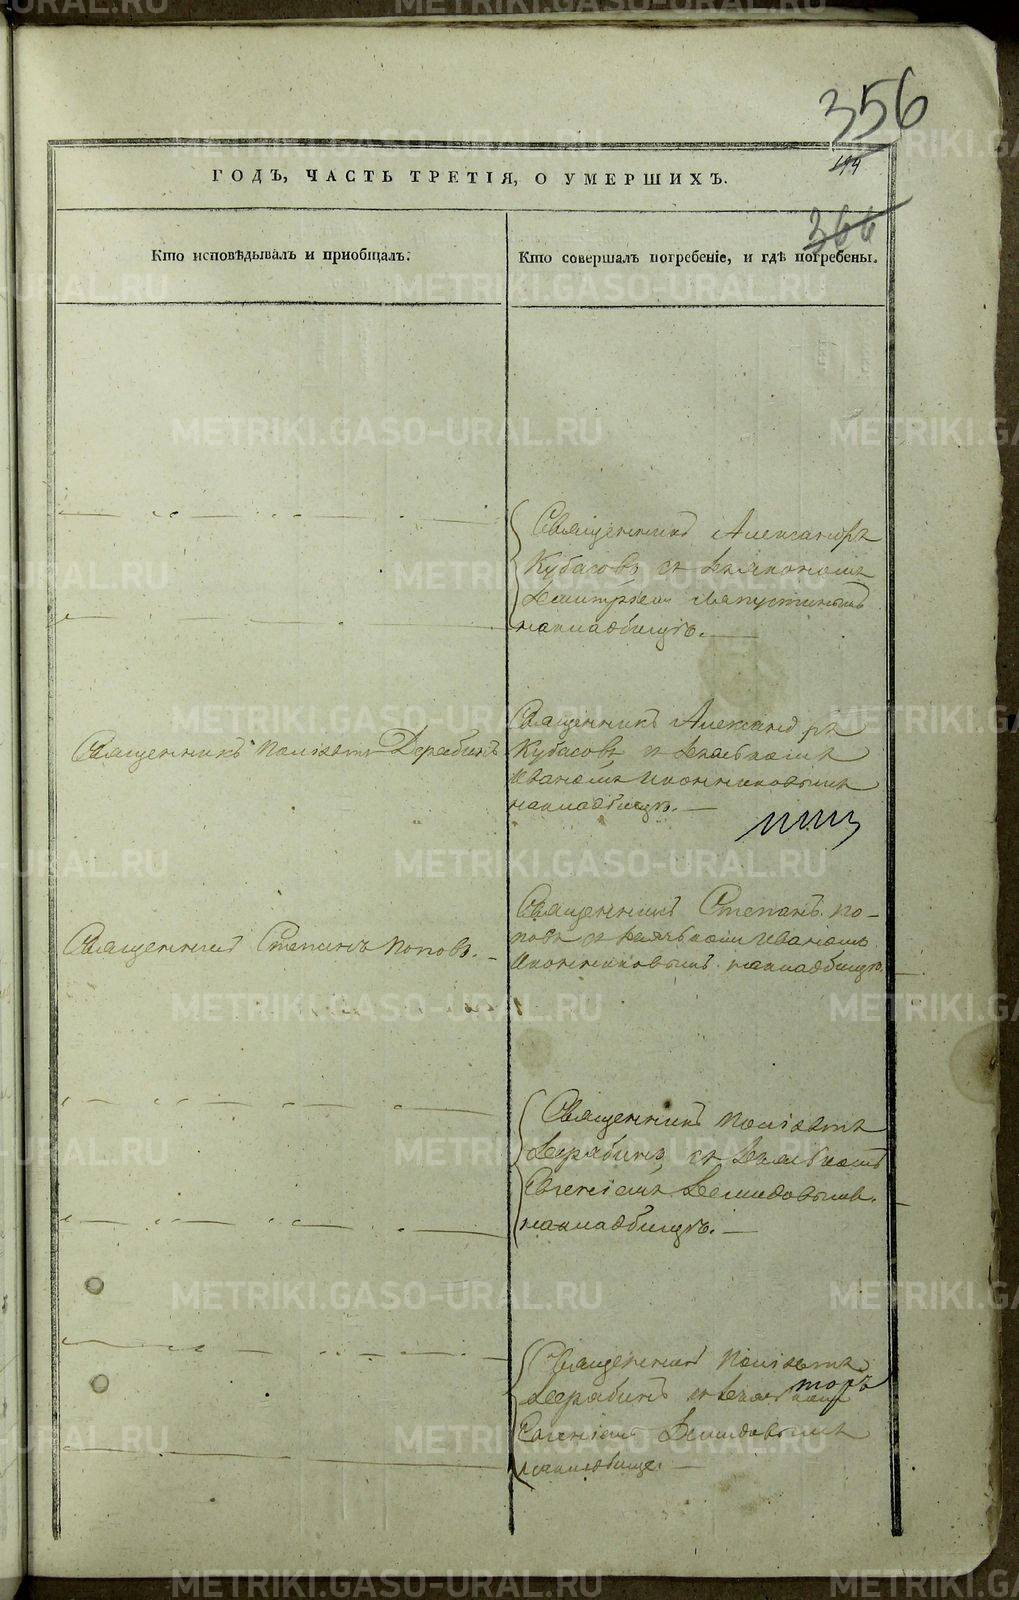 356
199
ГОДЪ, ЧАСТЬ ТРЕТІЯ, О УМЕРШИХЪ.
366
Кто исповѣдывалъ и приобщалъ.
Кто совершалъ погребеніе, и гдѣ погребены.
Священникъ Александръ
Кубасовъ съ Діакономъ
Димитріем Ляпустинымъ
накладбищѣ.
Священникъ Поліэктъ Дерябинъ
Священникъ Александръ
Кубасовъ съ Дьячкомъ
Иваномъ Иконниковымъ
накладбищѣ.
Священникъ Степанъ Поповъ.
Священникъ Степанъ По-
повъ съ Дьячкомъ Иваномъ
Иконниковымъ накладбищѣ.
Священникъ Поліэктъ
Дерябинъ съ Дьячкомъ
Евгеніемъ Демидовымъ
накладбищѣ.
Священникъ Поліэктъ
Дерябинъ съ
Евгеніемъ Демидовымъ
накладбище.
METRIKI.GASO-URAL.RU